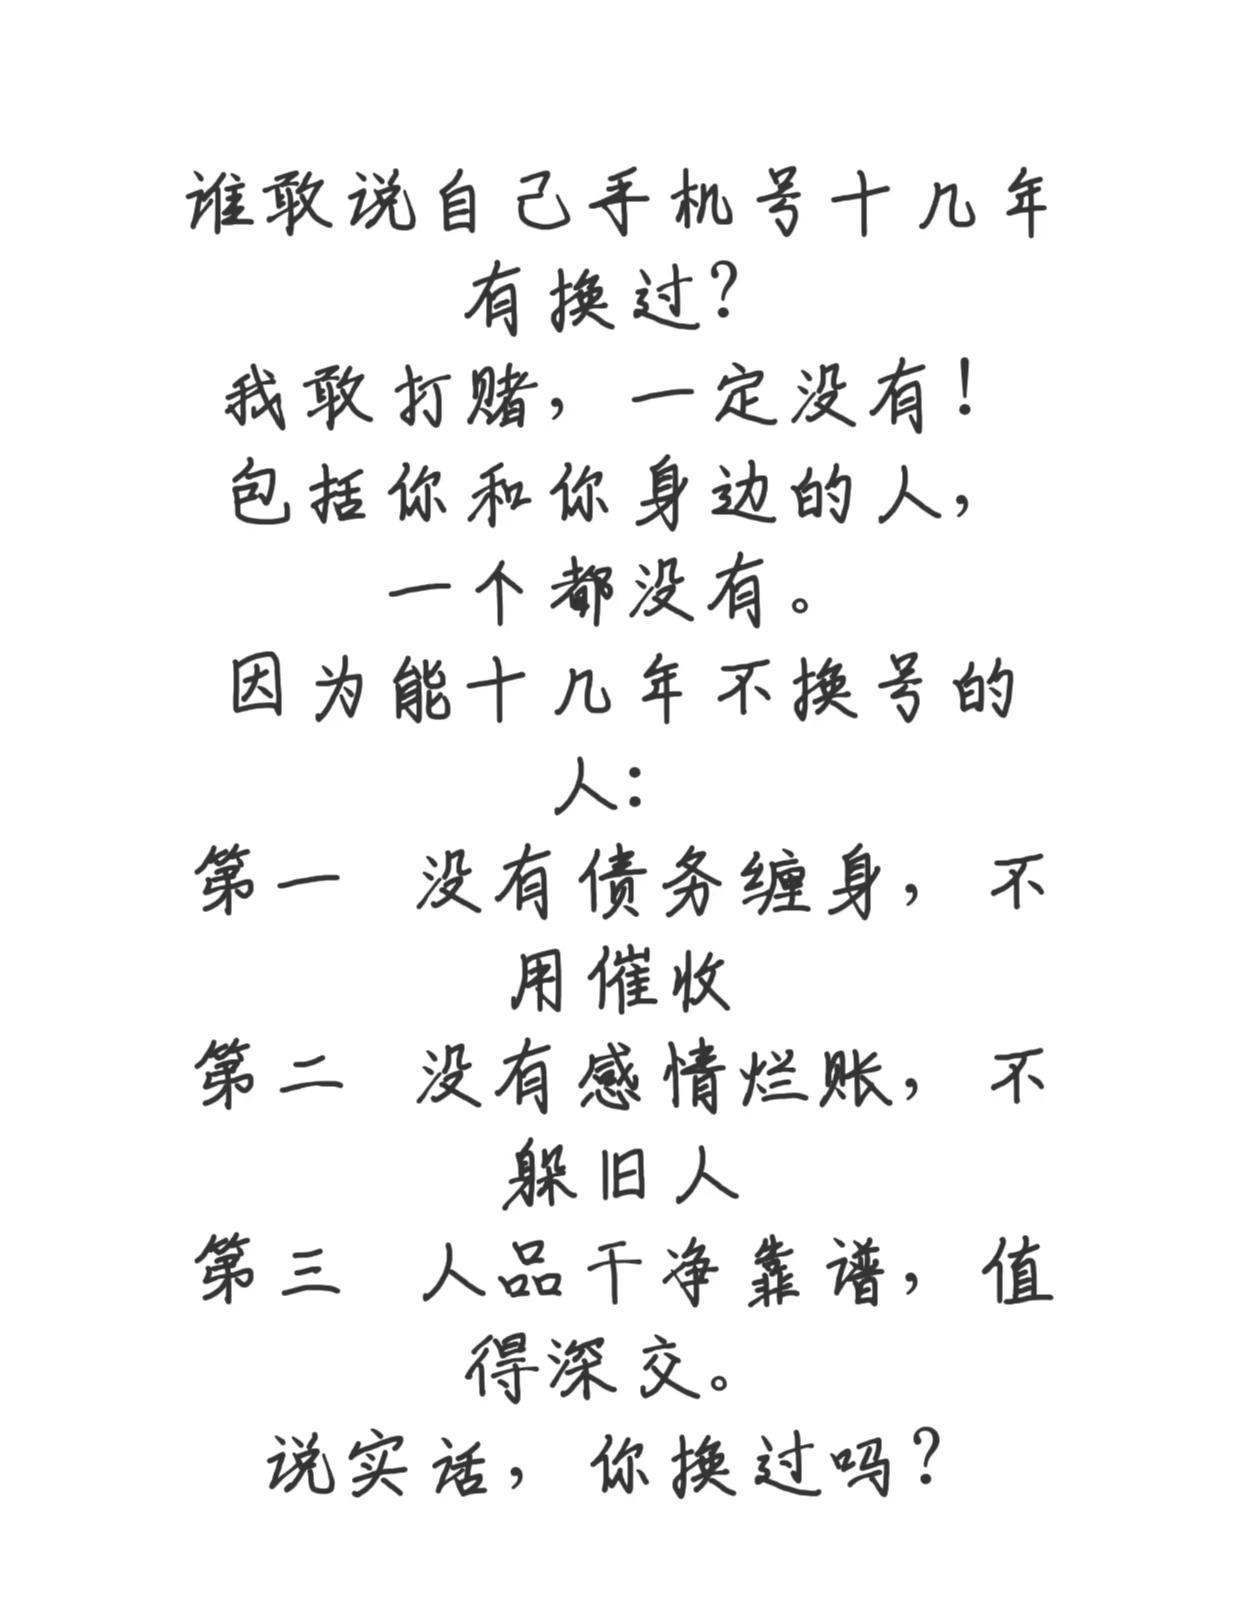 谁敢说自己手机号十几年
有换过？
我敢打赌，一定没有！
包括你和你身边的人，
一个都没有。
因为能十几年不换号的
人：
第一 没有债务缠身，不
用催收
第二 没有感情烂账，不
躲旧人
第三 人品干净靠谱，值
得深交。
说实话，你换过吗？